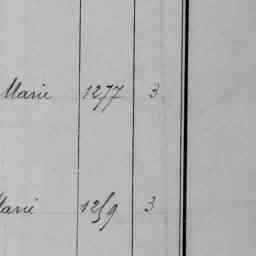 Marie 1277 3
Marie 1259 3